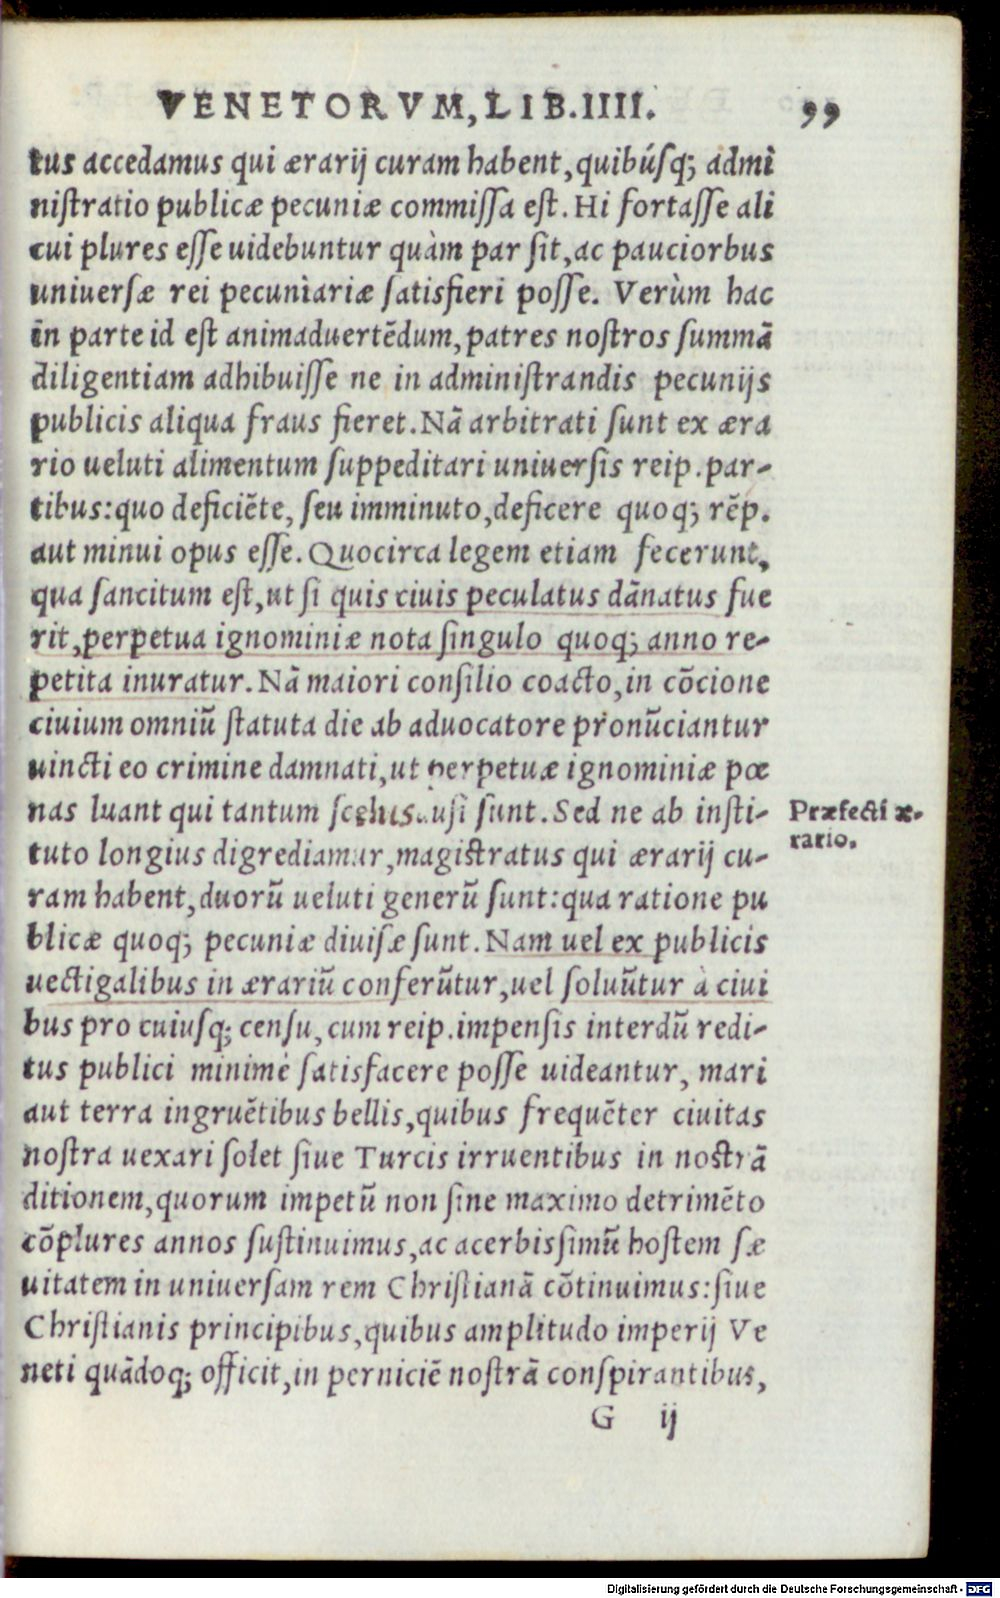 VENETORVM, LIB. IIII. 99
tus accedamus qui ærarij curam habent, quibúsq; admi
nistratio publicæ pecuniæ commissa est. Hi fortasse ali
cui plures esse uidebuntur quàm par sit, ac pauciorbus
uniuersæ rei pecuniariæ satisfieri posse. Verùm hac
in parte id est animaduertẽdum, patres nostros summã
diligentiam adhibuisse ne in administrandis pecunijs
publicis aliqua fraus fieret. Nã arbitrati sunt ex æra
rio ueluti alimentum suppeditari uniuersis reip. par-
tibus: quo deficiẽte, seu imminuto, deficere quoq; rẽp.
aut minui opus esse. Quocirca legem etiam fecerunt,
qua sancitum est, ut si quis ciuis peculatus dãnatus fue
rit, perpetua ignominiæ nota singulo quoq; anno re-
petita inuratur. Nã maiori consilio coacto, in cõcione
ciuium omniũ statuta die ab aduocatore pronũciantur
uincti eo crimine damnati, ut perpetuæ ignominiæ pœ
nas luant qui tantum scelus ausi sunt. Sed ne ab insti-
Præfecti æ-
rario.
tuto longius digrediamur, magistratus qui ærarij cu-
ram habent, duorũ ueluti generũ sunt: qua ratione pu
blicæ quoq; pecuniæ diuisæ sunt. Nam uel ex publicis
uectigalibus in ærariũ conferũtur, uel soluũtur à ciui
bus pro cuiusq; censu, cum reip. impensis interdũ redi-
tus publici minimè satisfacere posse uideantur, mari
aut terra ingruẽtibus bellis, quibus frequẽter ciuitas
nostra uexari solet siue Turcis irruentibus in nostrã
ditionem, quorum impetũ non sine maximo detrimẽto
cõplures annos sustinuimus, ac acerbissimũ hostem sæ
uitatem in uniuersam rem Christianã cõtinuimus: siue
Christianis principibus, quibus amplitudo imperij Ve
neti quãdoq; officit, in perniciẽ nostrã conspirantibus,
G ij
Digitalisierung gefördert durch die Deutsche Forschungsgemeinschaft - DFG